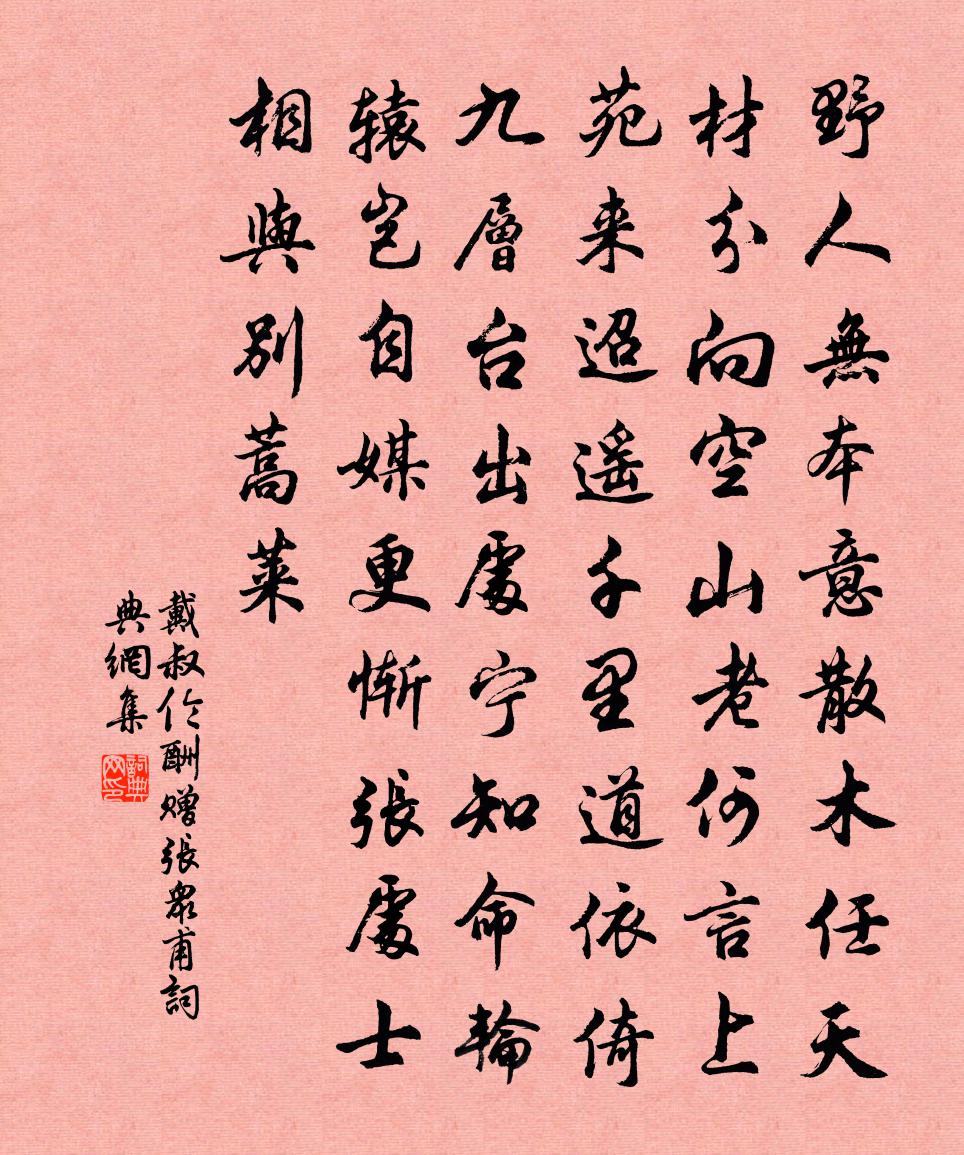 野人無本意散木任天
材分向空山老何言上
苑来迢遥千里道依倚
九層台出處宁知命輪
辕岂自媒更慚張處士
相與別蒿莱
戴叔伦酬赠張衆甫詞
典網集
詞典网印